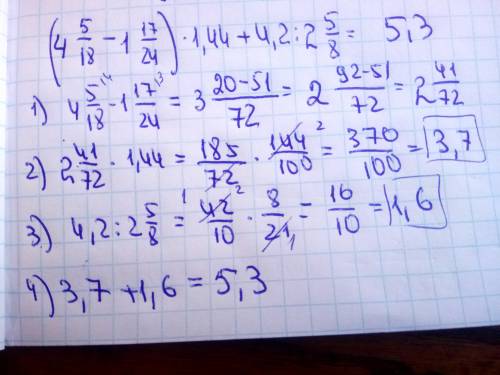 (4 5/18 − 1 17/24) · 1,44 + 4,2 : 2 5/8 = 5,3
1) 4 5/18 ⁴ − 1 17/24 ³ = 3 20−51/72 = 2 92−51/72 = 2 41/72
2) 2 41/72 · 1,44 = 185/72 · 144/100 ² = 370/100 = 3,7
3) 4,2 : 2 5/8 = ¹ 42/10 ² · 8/21 ₁ = 16/10 = 1,6
4) 3,7 + 1,6 = 5,3